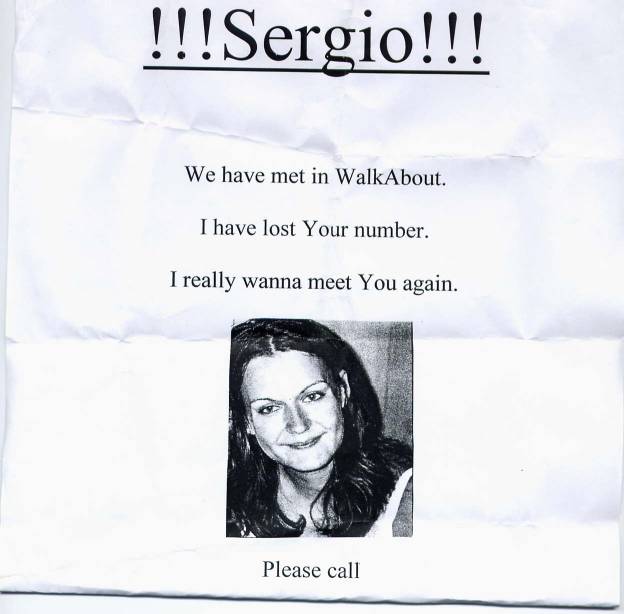 !!!Sergio!!!
We have met in WalkAbout.
I have lost Your number.
I really wanna meet You again.
Please call